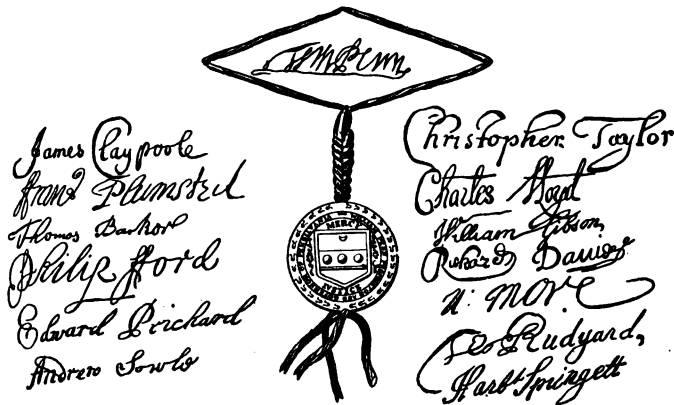 Wm Penn
James Claypoole
ffranc Plumsted
Thomas Barker
Philip fford
Edward Prichard
Andrew Sowle
MERCY
JUSTICE
Christopher Taylor
Charles Lloyd
William Gibson,
Richard Davies
N: More
Tho Rudyard,
Harbt Springett